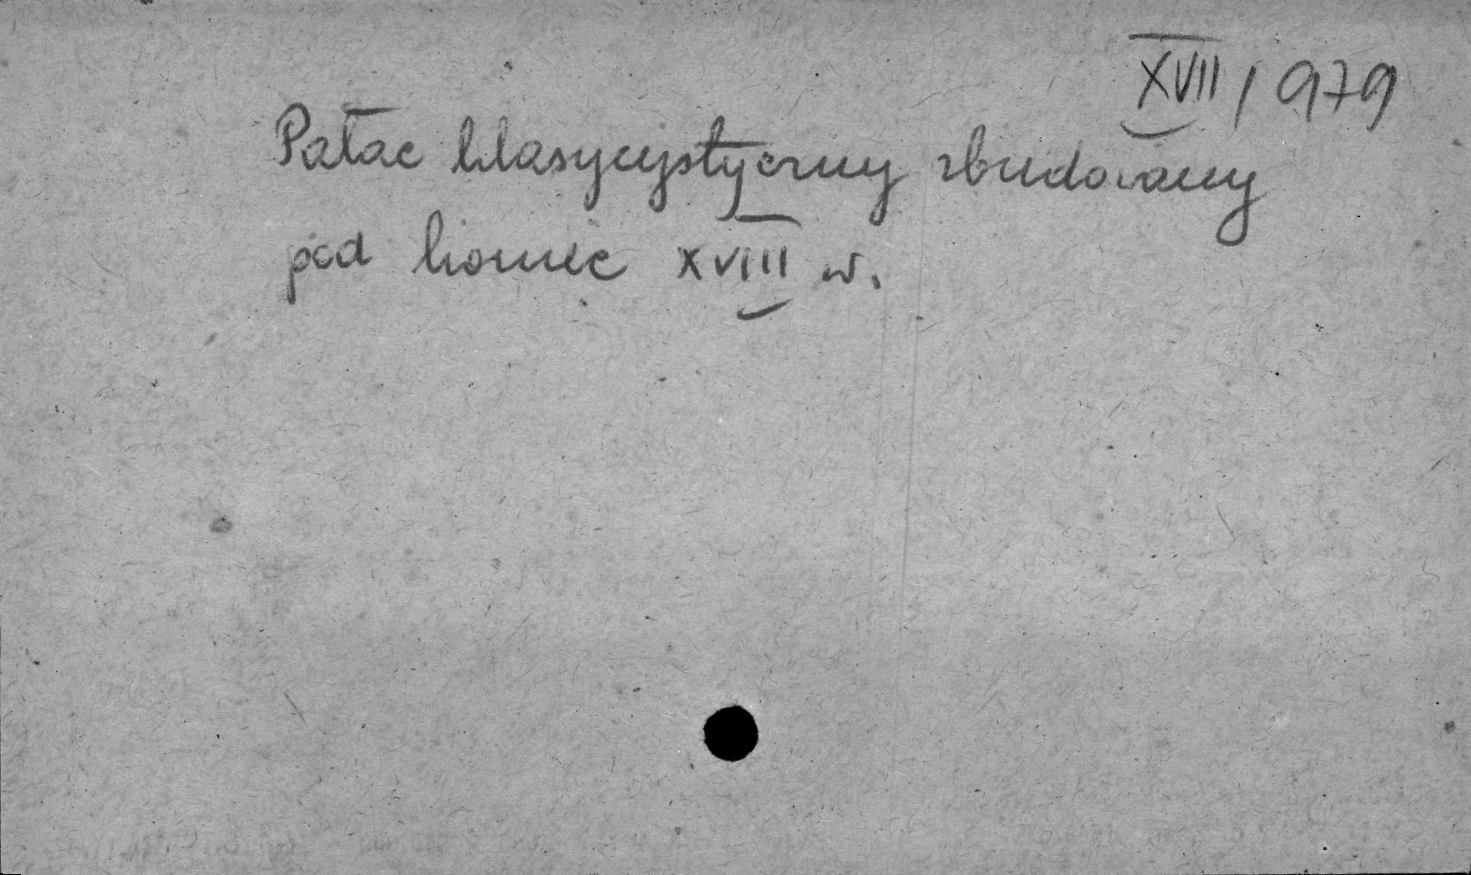 XVII / 979
Pałac klasycystyczny zbudowany
pod koniec XVIII w.